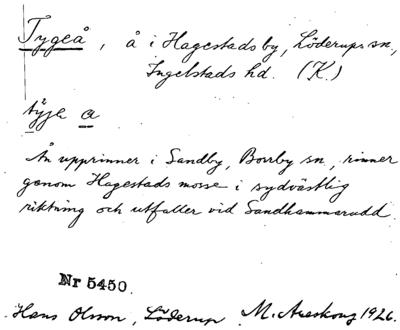 Tygeå, å i Hagestads by, Löderups sn,
Ingelstads hd. (K.)
a
Ån upprinner i Sandby, Borrby sn, rinner
genom Hagestads mosse i sydvästlig
riktning och utfaller vid Sandhammarudd.
Nr 5450.
Hans Olsson, Löderup M. Areskoug 1926.